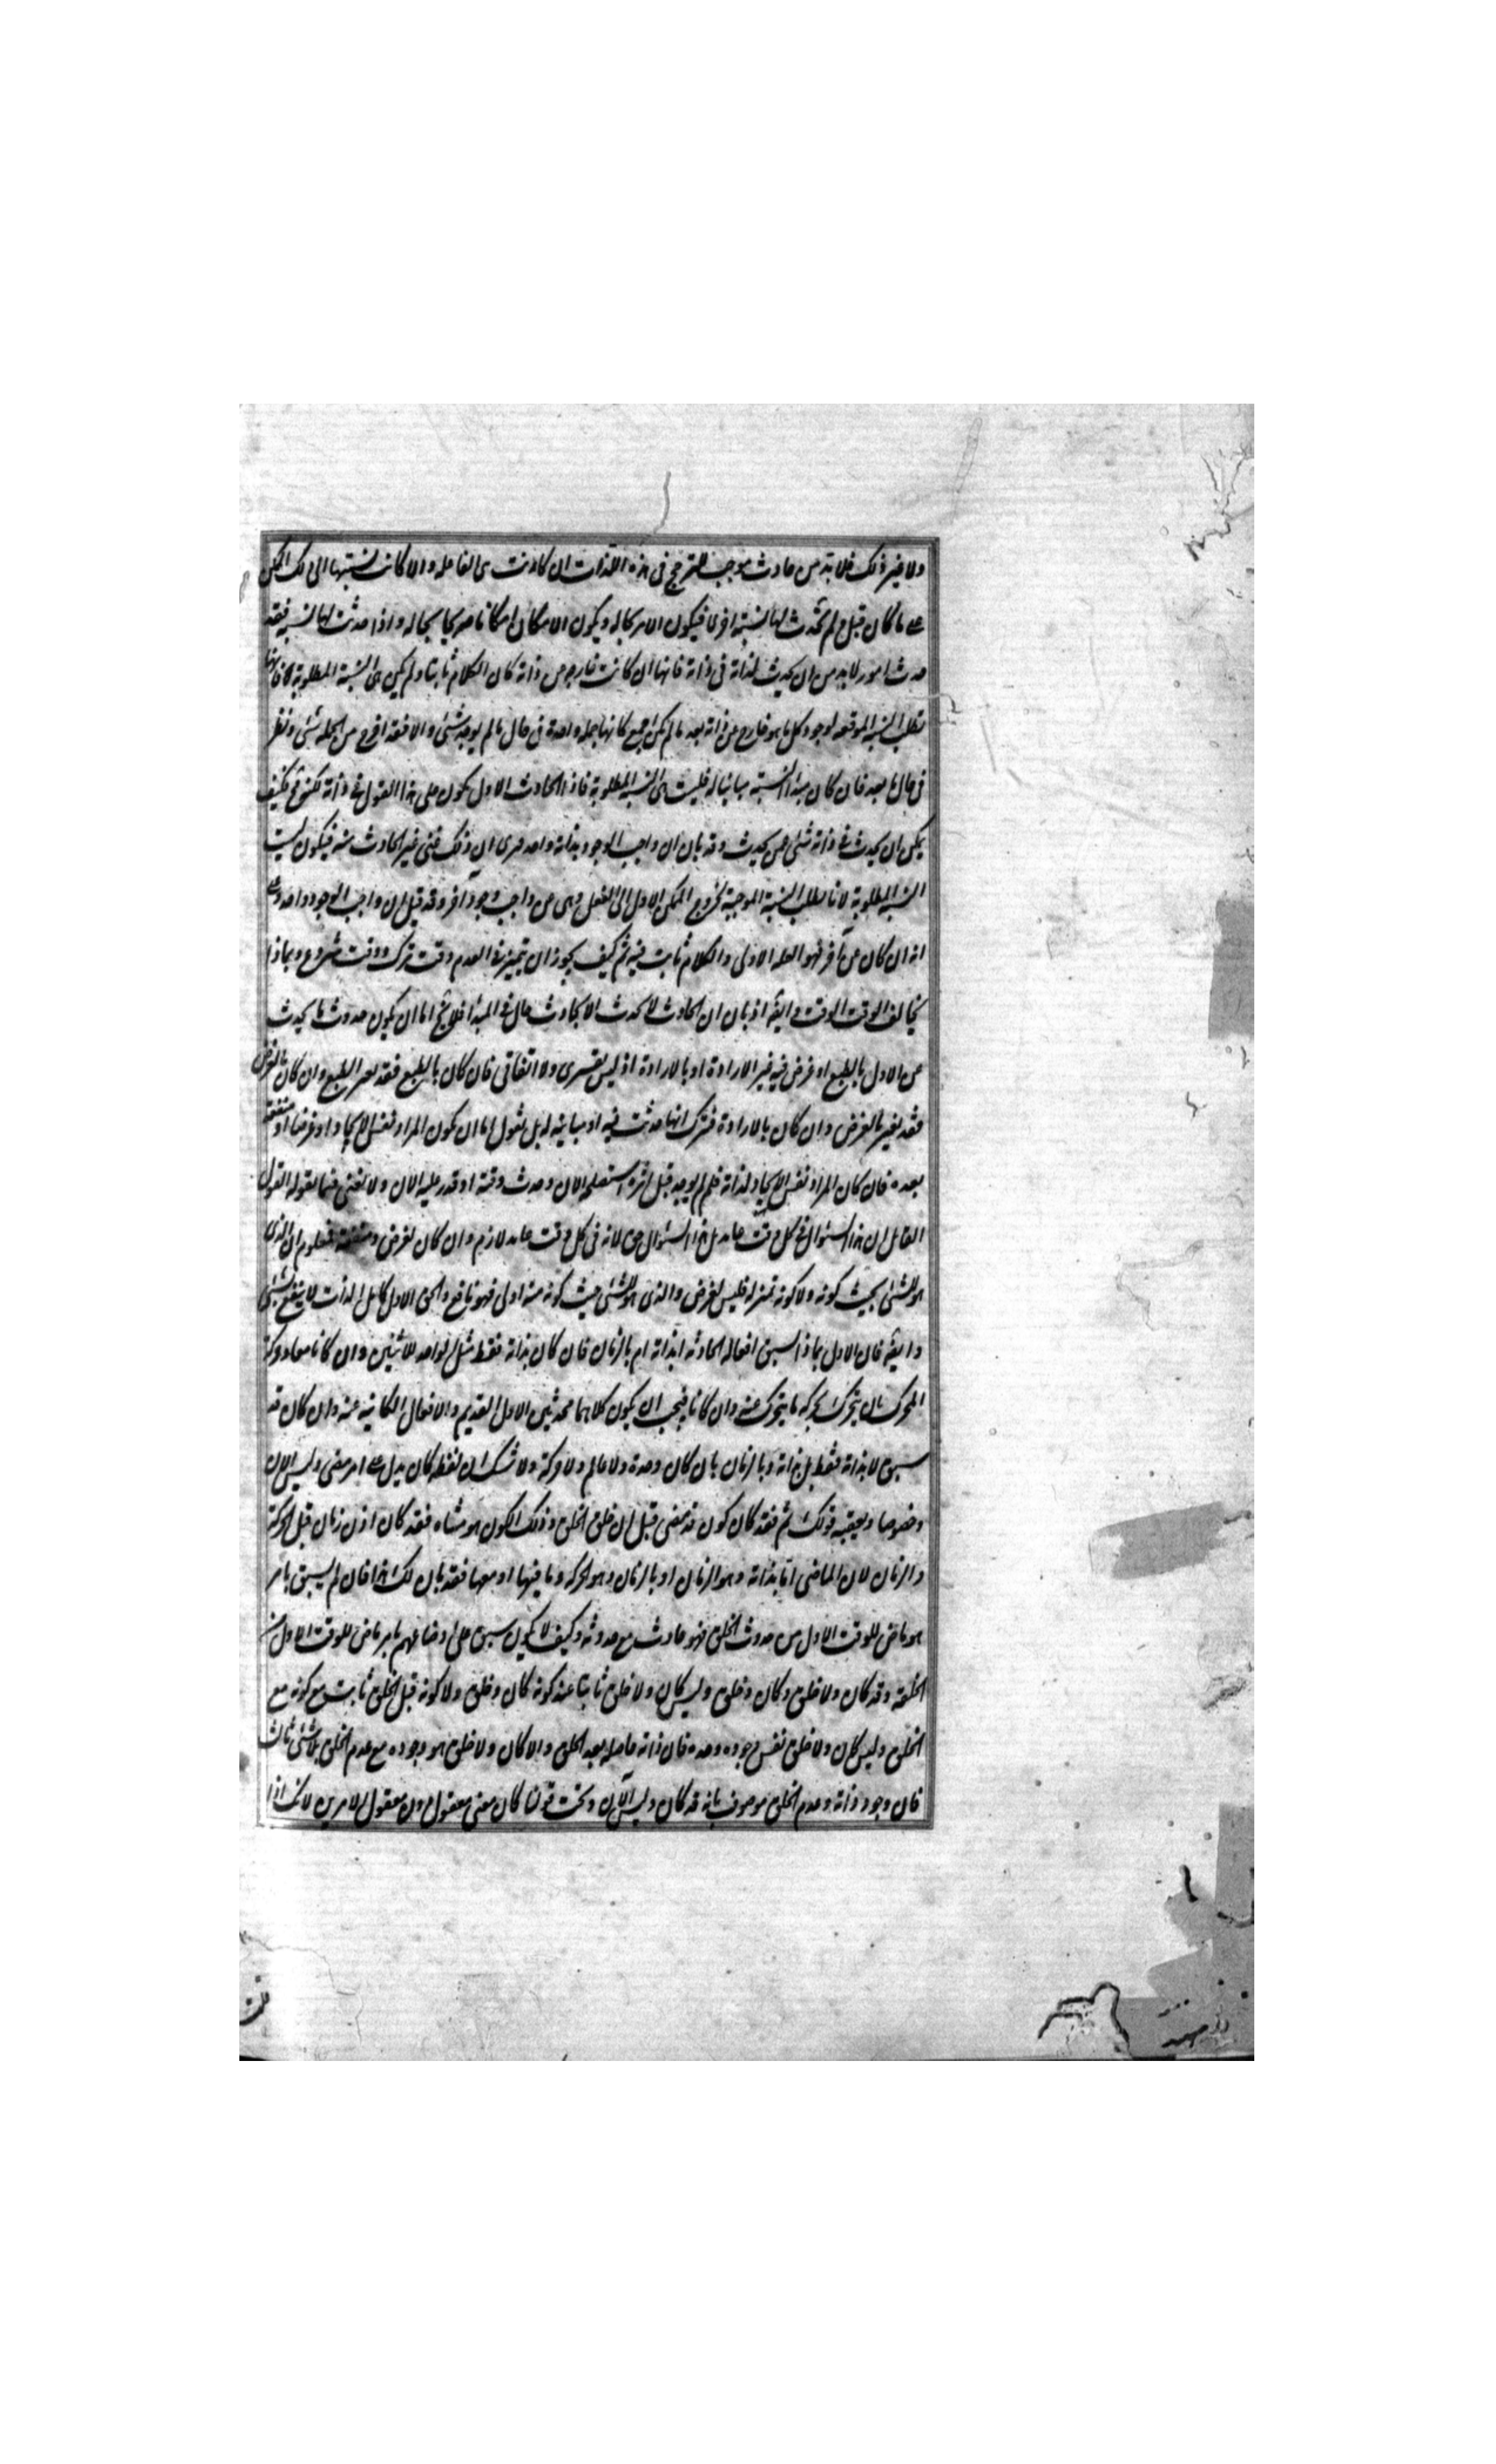 ولا غير ذلك فلا بد من حادث موجب للترجيح فى هذه الذات ان كانت هى الفاعله والا كانت نسبتها الى ذلك الممكن
على ما كان قبل ولم تحدث لها نسبة اخرى فيكون الامر بحاله ويكون الامكان امكانا صرفا بحاله واذا حدثت لها نسبه فقد
حدث امور لا بد من ان يحدث لذاته فى ذاته فانها ان كانت خارجه من ذاته كان الكلام ثابتا ولم يكن هى النسبة المطلوبة فانها
نطلب النسبه الموقعه لوجود كل ما هو خارج عن ذاته بعد ما لم يكن اجمع كانها جمله واحدة فى حال ما لم يوجد شئ والا فقد اخرج من الجمله شئ ونظر
فى حال ما بعد فان كان مبدا النسبة مباينا له فليست هى النسبة المطلوبة فاذا الحادث الاول يكون على هذا القول فى ذاته لكنه مح فكيف
يمكن ان يحدث فى ذاته شئ عمن يحدث وقد بان ان واجب الوجود بذاته واحد فترى ان ذلك غير الحادث منه فيكون ليست
النسبه المطلوبة لانا نطلب النسبة الموجبة لخروج الممكن الاول الى الفعل وهى من واجب وجود آخر وقد قيل ان واجب الوجود واحد وعلى
انه ان كان من آخر فهو العله الاولى والكلام ثابت فيه ثم كيف يجوز ان يتميز فى العدم وقت ترك ووقت شروع وبماذا
يخالف الوقت الوقت وايضه اذ بان ان الحادث لا يحدث الا بحادث حال فى المبدأ فلا يخ اما ان يكون حدوث ما يحدث
عن الاول بالطبع او غرض فيه غير الارادة او بالارادة اذ ليس بقسرى ولا اتفاقى فان كان بالطبع فقد تغير الطبع وان كان بالغرض
فقد تغير الغرض وان كان بالارادة فنترك انها حدثت فيه او مباينه له بل نقول اما ان يكون المراد نفس الايجاد او غرضا او منفعة
بعده فان كان المراد نفس الايجاد لذاته فلم لم يوجد قبل اتراه استصلحه الان وحدث وقته او قدر عليه الان ولا نعنى فيما نقوله القول
القائل ان هذا السئوال فى كل وقت عايد بل هذا السئوال حق لانه فى كل وقت عايد لازم وان كان لغرض ومنفعة فمعلوم ان الذى
هو للشئ بحيث كونه ولا كونه بمنزله فليس لغرض والذى هو للشئ بحيث كونه منه اولى فهو نافع والحق الاول كامل الذات لا ينتفع بشئ
وايضه فان الاول بماذا سبق افعاله الحادثه ابذاته ام بالزمان فان كان بذاته فقط مثل الواحد للاثنين وان كانا معا وحركة
المحرك بان يتحرك بحركه ما يتحرك عنه وان كانا فيجب ان يكون كلاهما محدثين الاول القديم والافعال الكائنه عنه وان كان قد
سبق لا بذاته فقط بل بذاته وبالزمان بان كان وحده ولا عالم ولا حركة ولا شك ان لفظه كان يدل على امر مضى وليس الان
وخصوصا ويعقبه قولك ثم فقد كان كون قد مضى قبل ان خلق الخلق وذلك الكون هو متناه فقد كان اذن زمان قبل الحركة
والزمان لان الماضى اما بذاته وهو الزمان او بالزمان وهو الحركه وما فيها او معها فقد بان لك هذا فان لم يسبق بامر
هو ماض للوقت الاول من حدوث الخلق فهو حادث مع حدوثه وكيف لا يكون سبق على اوضاعهم بامر ماض للوقت الاول من
الخلقه وقد كان ولا خلق وكان وخلق وليس كان ولا خلق ثابتا عند كونه كان وخلق ولا كونه قبل الخلق ثابت مع كونه مع
الخلق وليس كان ولا خلق نفس وجوده وحده فان ذاته حاصله بعد الخلق والا كان ولا خلق هو وجوده مع عدم الخلق بلا شئ ثالث
فان وجود ذاته وعدم الخلق موصوف بانه قد كان وليس الآن وتحت قولنا كان معنى معقول دون معقول الامرين لانك اذا